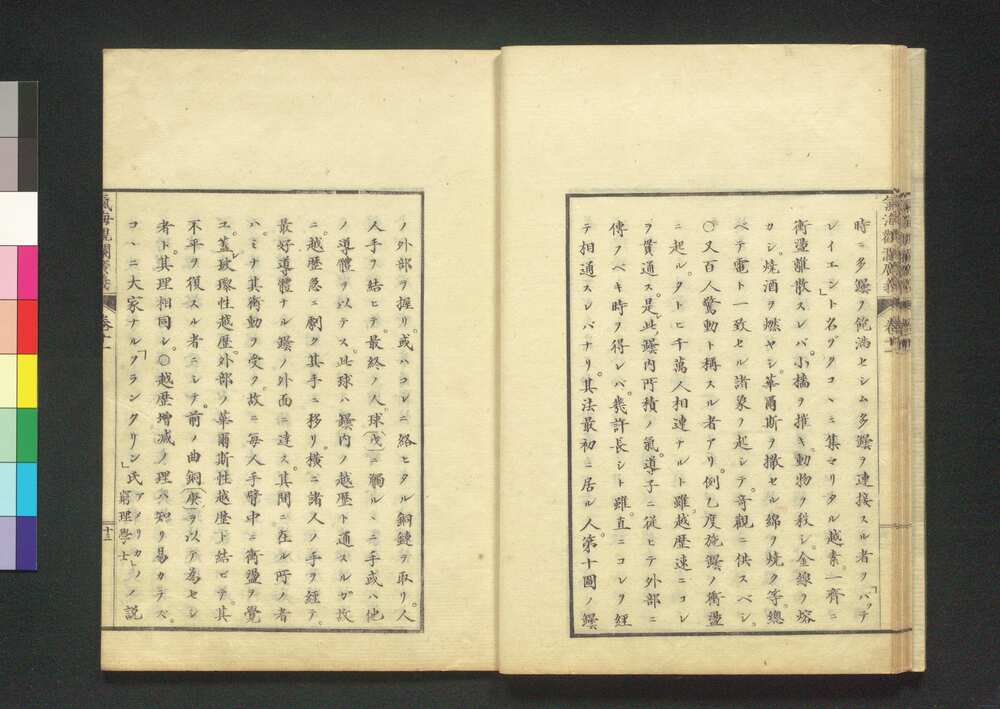 時ニ多罎ヲ飽満セシム多罎ヲ連接スル者ヲ「バッテ
レイエ」ント名ヅクコヽニ集マリタル越素一齊ニ
衝盪離散スレバ小橋ヲ摧キ動物ヲ殺シ金線ヲ熔
カシ焼酒ヲ燃ヤシ華爾斯ヲ撒セル綿ヲ焼ク等總
ベテ電ト一致セル諸象ヲ起シテ奇觀ニ供スベシ
○又百人驚動ト稱スル者アリ例乄度施罎ノ衝盪
ニ起ルタトヒ千萬人相連ナルト雖越歷速ニコレ
ヲ貫通ス是レ此罎内所積ノ氣導子ニ従ヒテ外部ニ
傳フベキ時ヲ得レバ幾許長シト雖直ニコレヲ経
テ相通スレバナリ其法最初ニ居ル人第十圖ノ罎
ノ外部ヲ握リ或ハコレニ絡ヒタル銅鏈ヲ取リ人
人手ヲ結ヒテ最終ノ人球(戊)ニ觸ルヽニ手或ハ他
ノ導體ヲ以テス此球ハ罎内ノ越歷ト通スルガ故
ニ越歷急ニ劇ク其手ニ移リ横ニ諸人ノ手ヲ経テ
最好導體ナル罎ノ外面ニ達ス其間ニ在ル所ノ者
ハミナ其衝動ヲ受ク故ニ毎人手臂中ニ衝盪ヲ覺
ユ蓋玻瓈性越歷外部ノ華爾斯性越歷ト結ビテ其
不平ヲ復スル者ニシテ前ノ曲銅(庚)ヲ以テ為セシ
者ト其理相同レ○越歷增減ノ理ハ知リ易カラズ
コヽニ大家ナル「フランクリン氏アメリカ」ノ窮理學士」ノ説
氣海觀瀾廣義
卷十一
十三